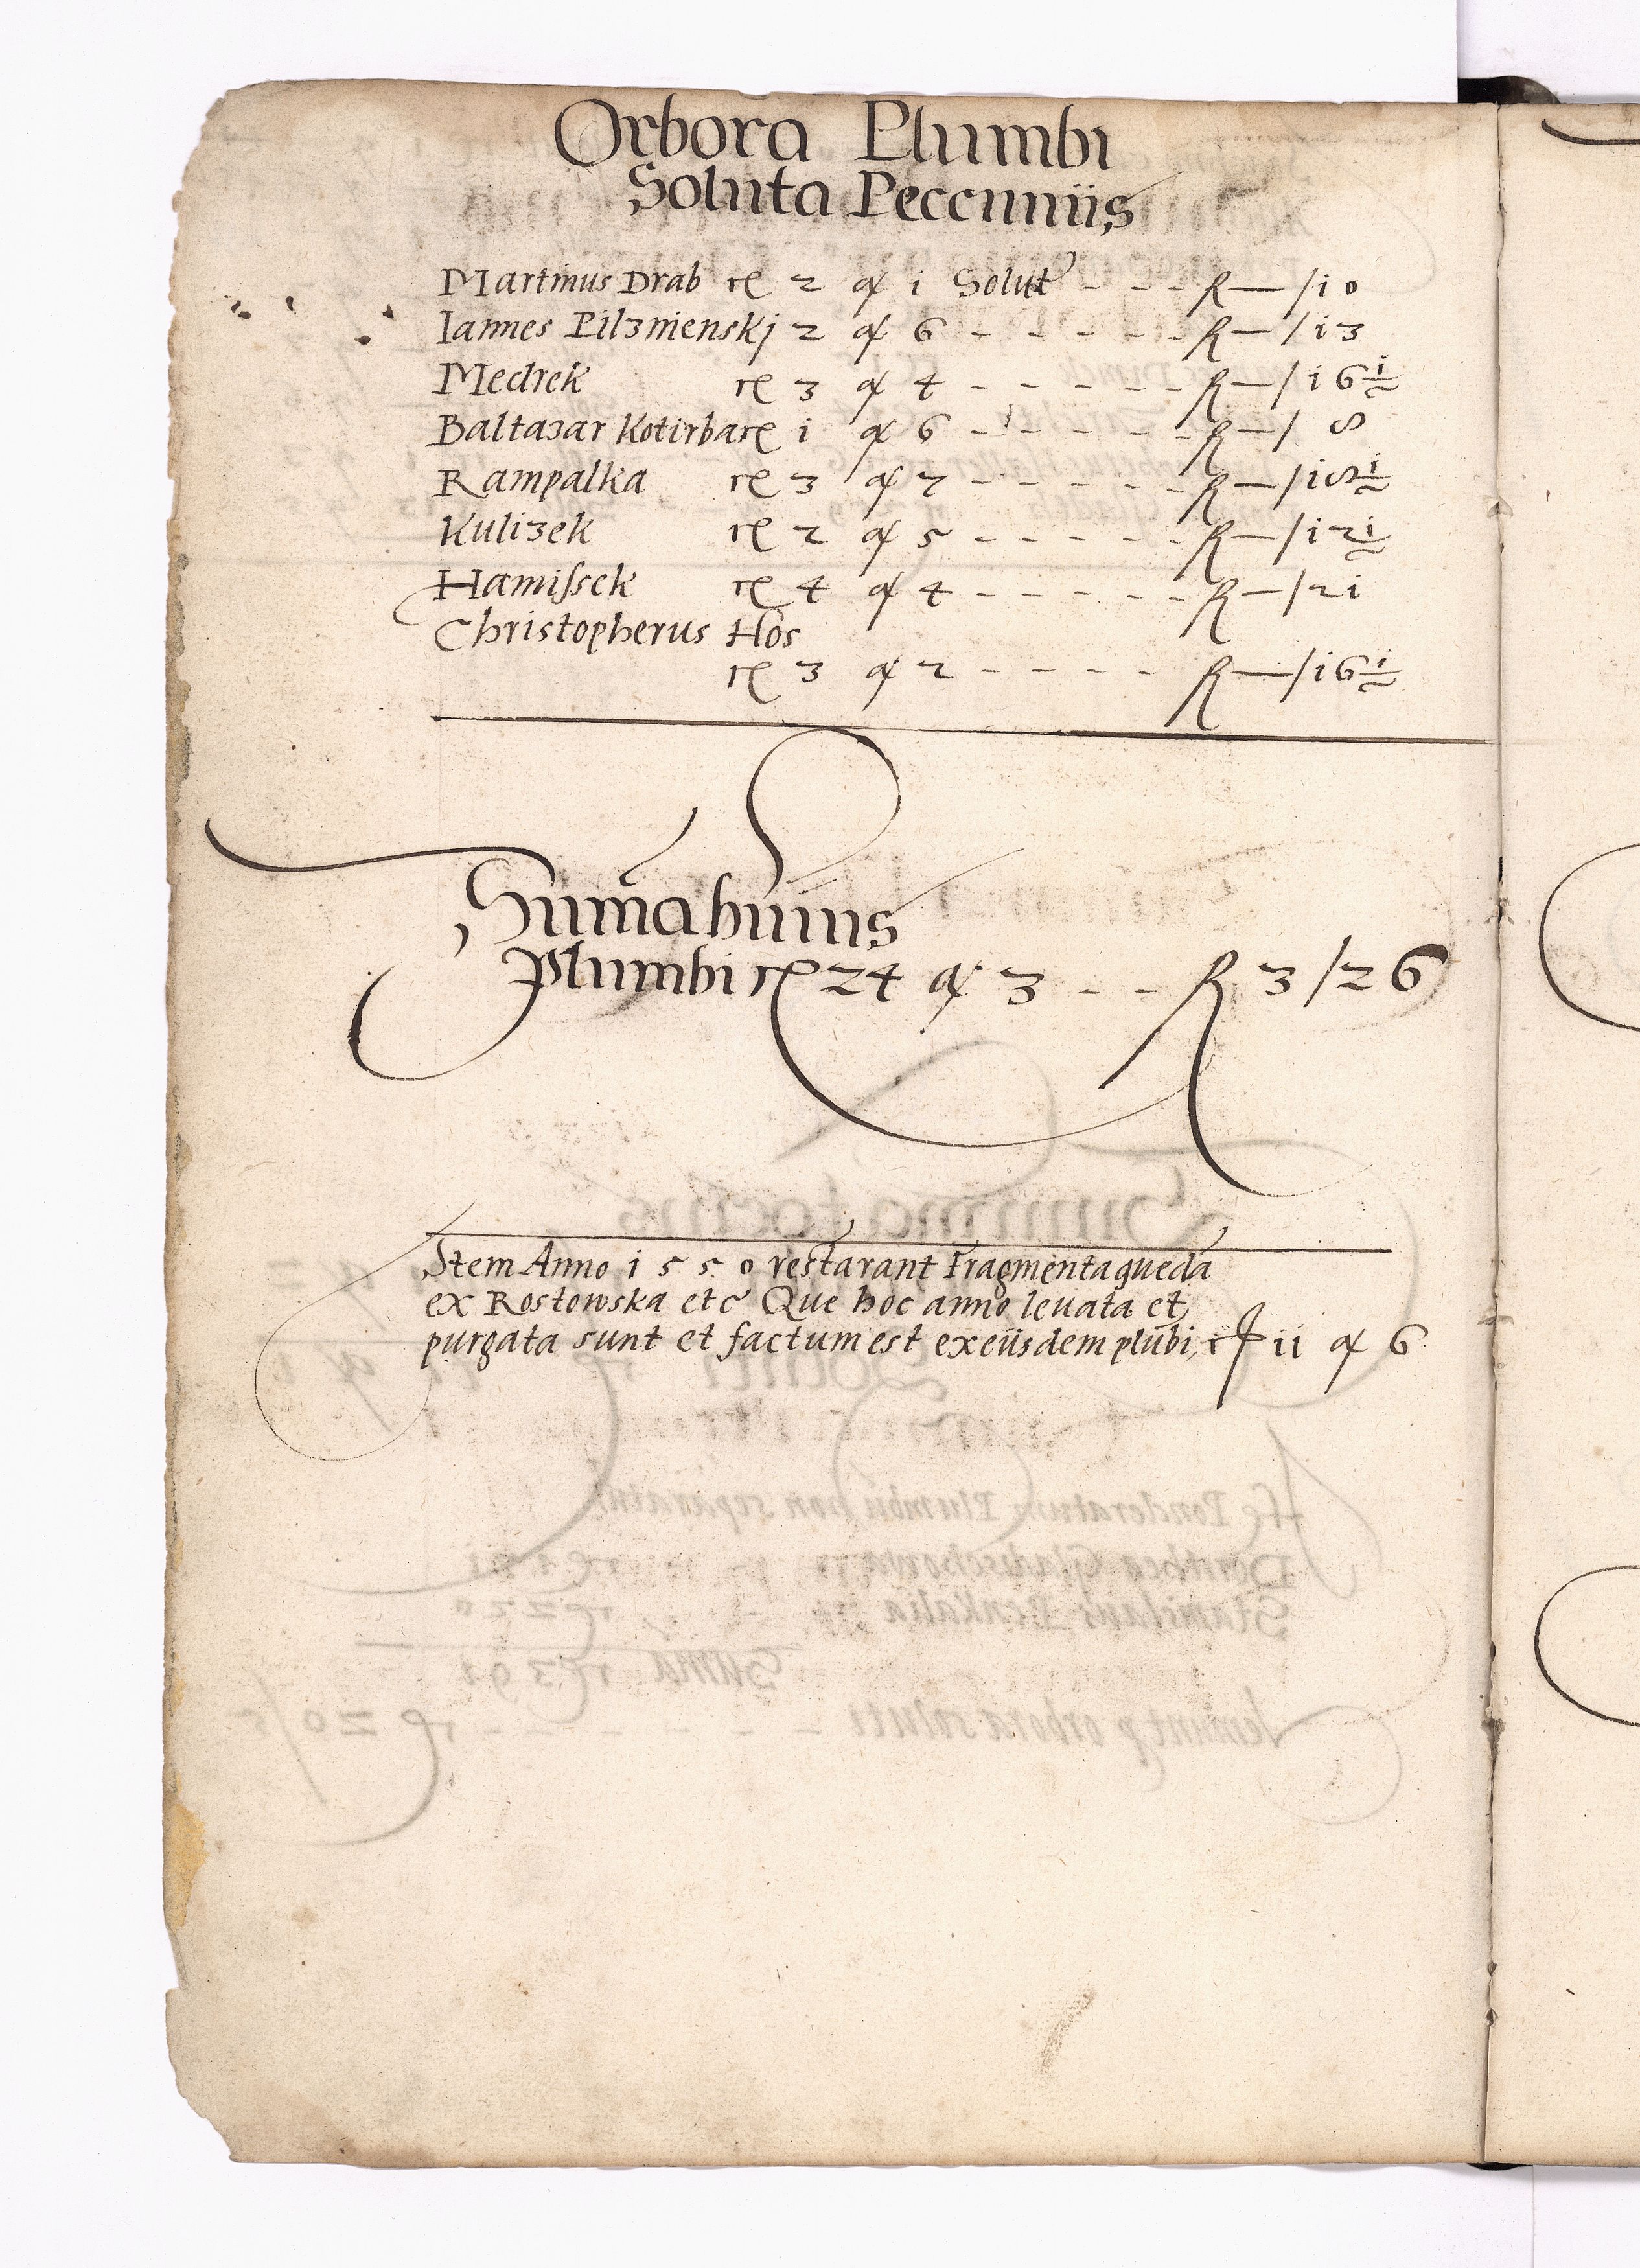 Orbora Plumbi
Soluta Peccuniis
Martinus Drab ce 2 q i Solut - - - R — / i0
Iannes Pilznienskj 2 q 6 - - - - - R — / i3
Medrek ce 3 q 4 - - - - - - R — / i6 i/2
Baltazar Kotirba ce i q 6 - - - - - - R — / 8
Rampalka ce 3 q 7 - - - - - - R — / i8 i/2
Kulizek ce 2 q 5 - - - - - - R — / i2 i/2
Hamissek ce 4 q 4 - - - - - - R — / 2i
Christopherus Hos
ce 3 q 2 - - - - - R — / i6 i/2
Sum̄a huius
Plumbi ce 24 q 3 - - R 3 / 26
Item Anno i550 restarant Fragmenta quedā
ex Rostowska etc Que hoc anno leuata et
purgata sunt et factum est ex eiisdem plūbi, ce ii q 6